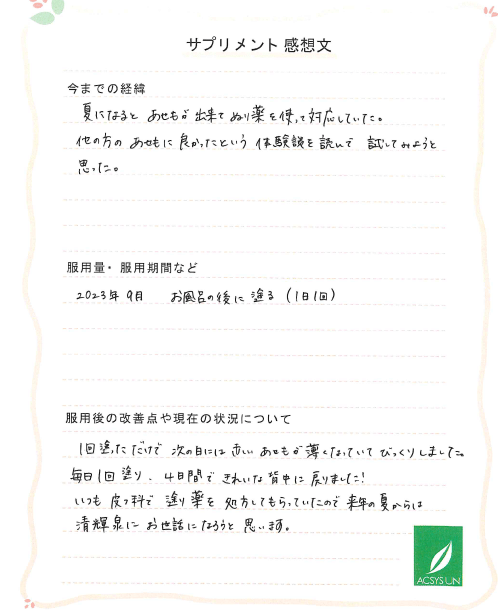 サプリメント 感想文
今までの経緯
夏になると あせもが 出来て ぬり薬を使って対応していた。
他の方の あせもに良かったという 体験談を読んで 試してみようと
思った。
服用量・服用期間など
2023年 9月 お風呂の後に 塗る (1日1回)
服用後の改善点や現在の状況について
1回塗っただけで 次の日には 赤い あせもが 薄くなっていて びっくりしました。
毎日1回塗り、4日間で きれいな 背中に 戻りました!
いつも 皮フ科で 塗り薬を 処方してもらっていたので 来年の夏からは
清輝泉に お世話になろうと 思います。
ACSYSUN